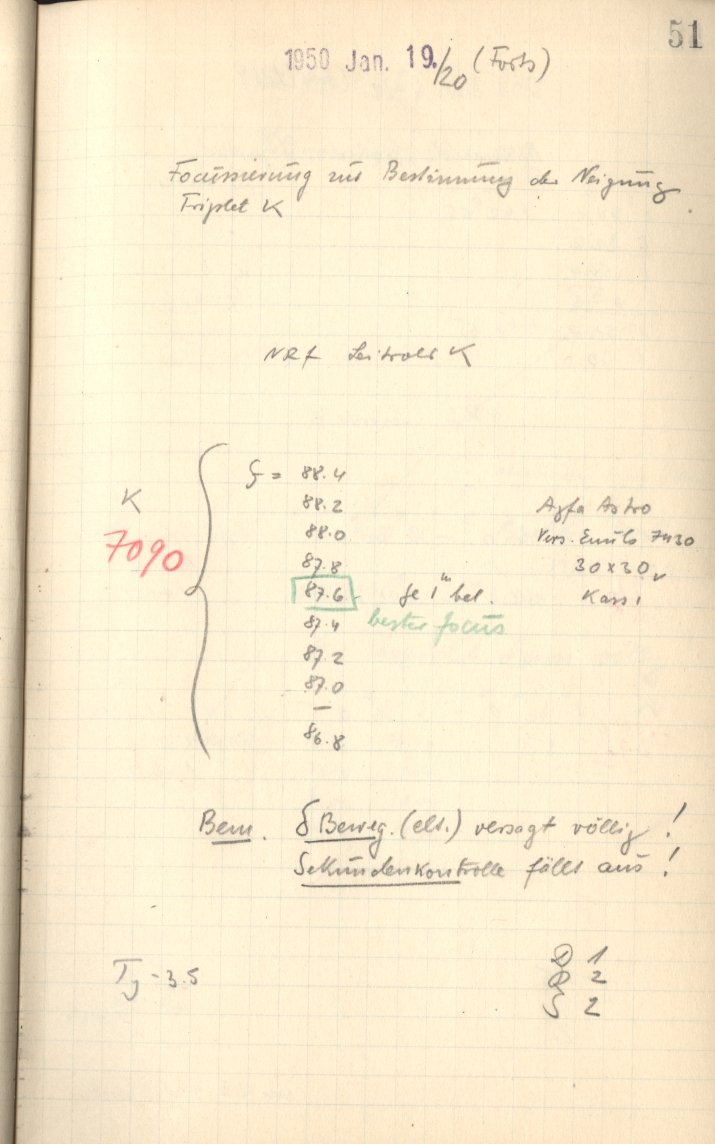 51
1950 Jan. 19./20 (Forts)
Focussierung zur Bestimmung der Neigung
Triplet K
NRF Leitrohr K
ζ = 88.4
K 88.2 Agfa Astro
88.0 Vers. Emuls 7430
7090 87.8 30x30
87.6 je 1m bel. Kass 1
87.4 bester focus
87.2
87.0
—
86.8
Bem. δ Beweg. (elt.) versagt völlig!
Sekundenkontrolle fällt aus!
D 1
T -3.5 R 2
S 2